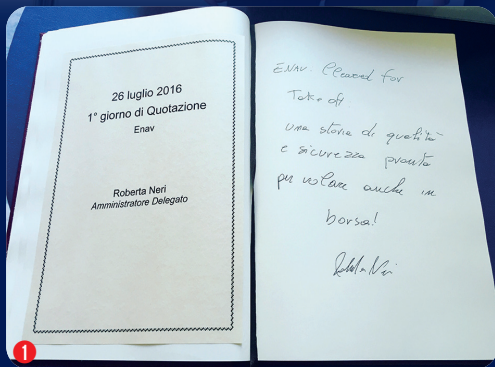 26 luglio 2016
1° giorno di Quotazione
Enav
Roberta Neri
Amministratore Delegato
ENAV. Cleared for
Take off
una storia di qualità
e sicurezza pronta
per volare anche in
borsa!
Roberta Neri
1